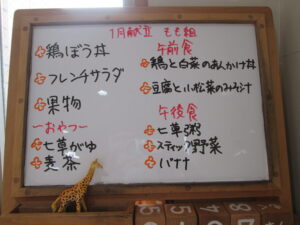 1月献立 もも組
鶏ごぼう丼
フレンチサラダ
果物
〜おやつ〜
七草がゆ
麦茶
午前食
鶏と白菜のあんかけ丼
豆腐と小松菜のみそ汁
午後食
七草粥
スティック野菜
バナナ